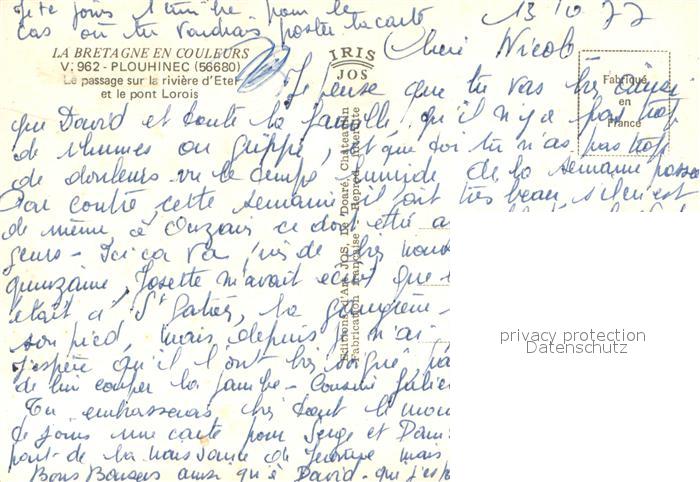 Je te joins 1 timbre pour le
cas où tu voudrais poster la carte
13 10 77
LA BRETAGNE EN COULEURS
V. 962 - PLOUHINEC (56680)
Le passage sur la rivière d'Etel
et le pont Lorois
IRIS
JOS
Fabriqué
en
France
Editions d'Art JOS, Le Doaré, Châteaulin
Fabrication française - Reprod. interdite
Chère Nicole
Je pense que tu vas bien ainsi
que David et toute la famille, qu'il n'y a pas trop
de rhumes ou grippe, et que toi tu n'as pas trop
de douleurs vu le temps humide de la semaine passée
Par contre cette semaine il fait très beau, s'il en est
de même à Ouzouer ce doit être
- Ici ca va
quinzaine, Josette m'avait écrit que
était à St Gatien, la gangrène
son pied, mais depuis je n'ai
J'espère qu'il l'ont bien soigné,
de lui couper la jambe - Cousine Juliette
Tu embrasseras bien tout le
Je joins une carte pour Serge et
part de la naissance de mais
Bons Baisers ainsi qu'à David - que j'esp
privacy protection
Datenschutz